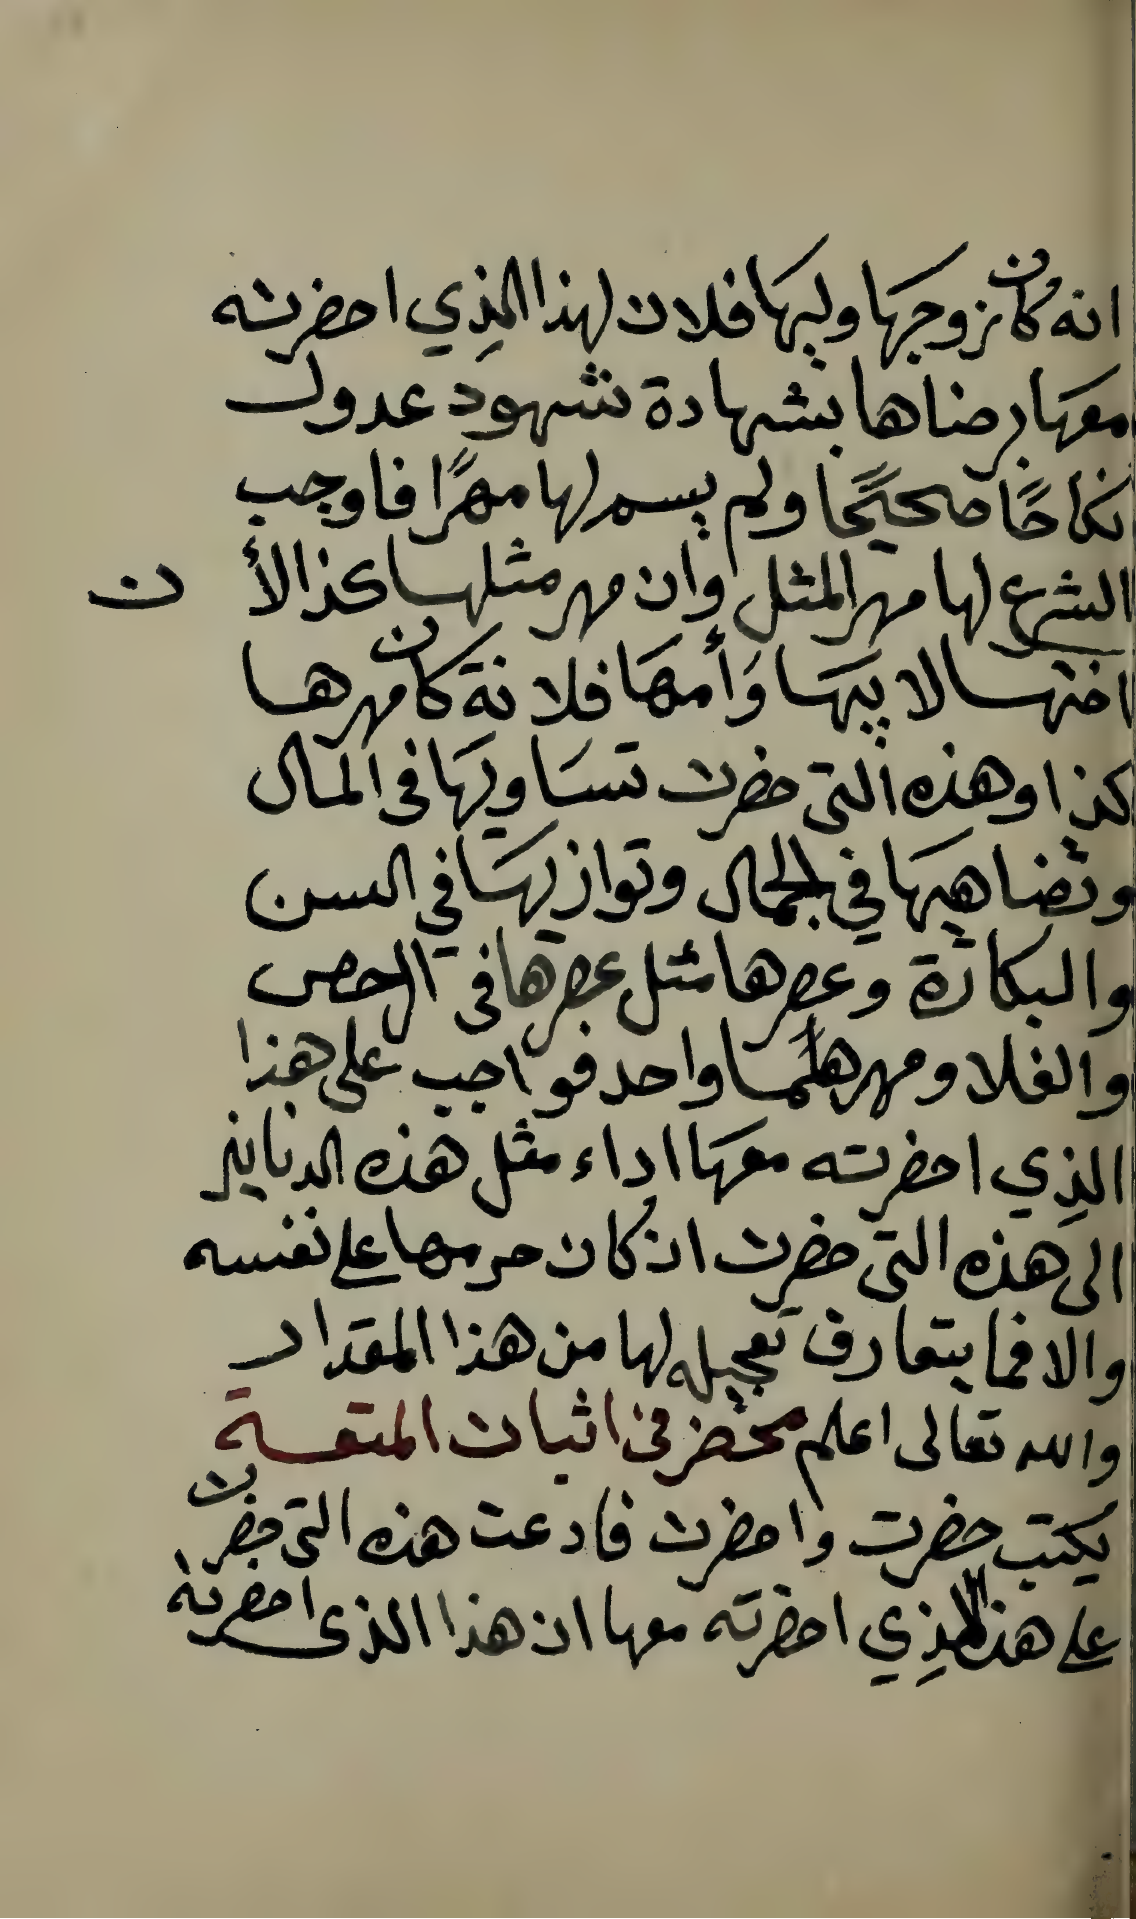 انه كان زوجها وليها فلان لهذا الذي احضرته
معها برضاها بشهادة شهود عدول
نكاحًا صحيحًا ولم يسم لها مهرًا فاوجب
الشرع لها مهر المثل وان مهر مثلها كذا لأن
اختها لابيها وَأمها فلانة كان مهرها
كذا وهذه التي حضرت تساويها في المال
وتضاهيها في الجمال وتوازيها في السن
والبكارة وعصرها مثل عصرها في الرخص
والغلا ومهرهما واحد فواجب على هذا
الذي احضرته معها اداء مثل هذه الدنانير
الى هذه التي حضرت ان كان حرمها على نفسه
والا فما يتعارف تعجيله لها من هذا المقدار
والله تعالى اعلم محضر في اثبات المتعة
يكتب حضرت واحضرت فادعت هذه التي حضرت
على هذا الذي احضرته معها ان هذا الذي احضرته